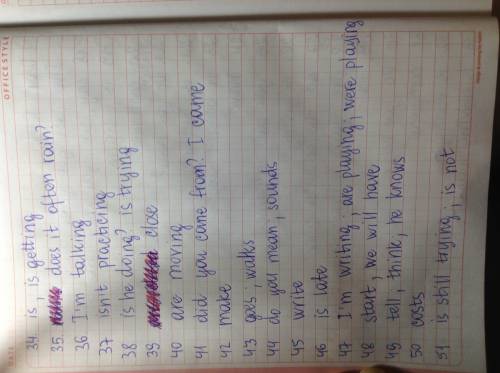 OFFICE STYLE
DATE
34 is, is getting
35 does it often rain?
36 I'm talking
37 isn't practicing
38 is he doing? is trying
39 close
40 are moving
41 did you came from? I came
42 make
43 goes, walks
44 do you mean, sounds
45 write
46 is late
47 I'm writing; are playing; were playing
48 start, we will have
49 tell, think, he knows
50 costs
51 is still trying; is not